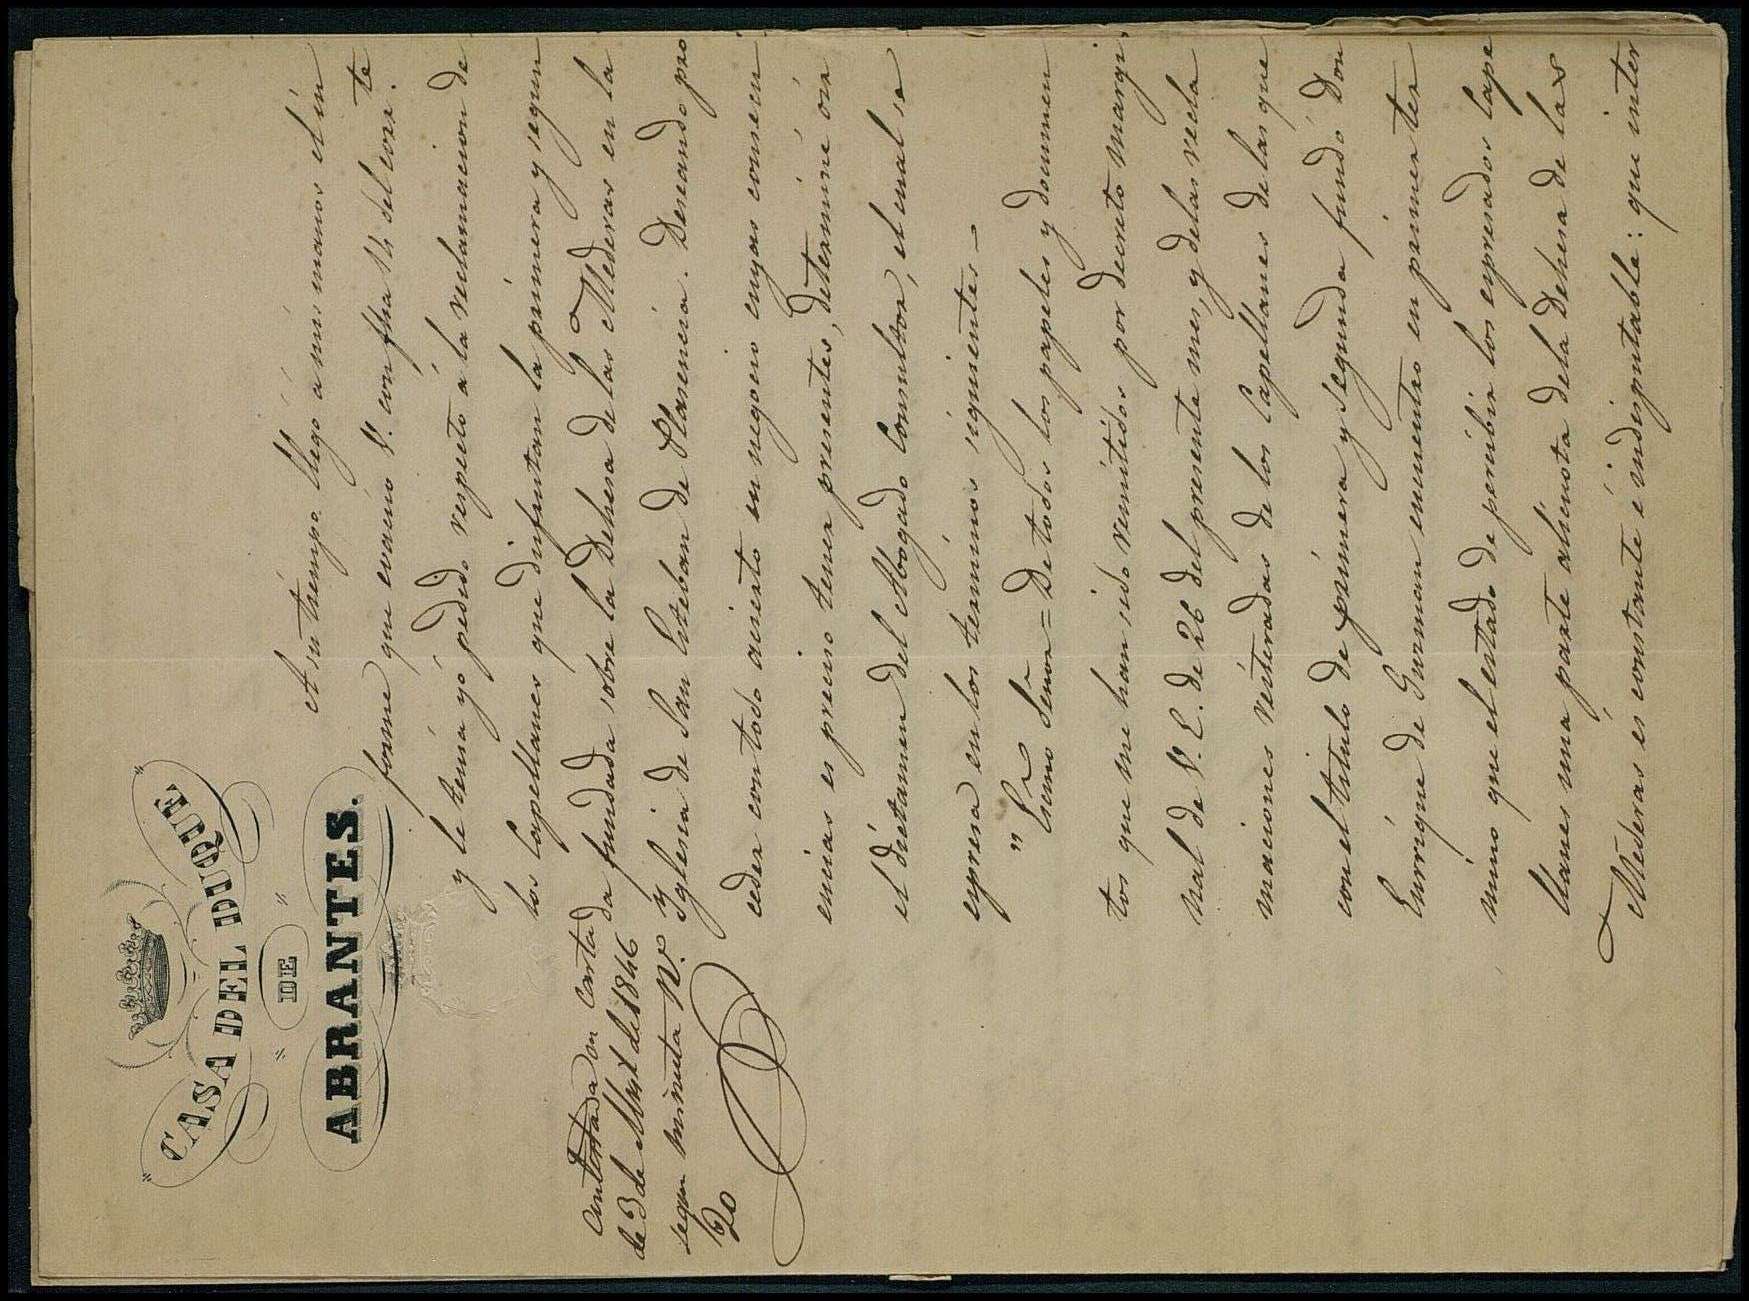 CASA DEL DUQUE
DE
ABRANTES.
Contestada en Carta
de 3 de Abril de 1846
segun minuta N.º
20
A su tiempo llegó a mis manos el in
forme que evacuó V. con fha 14 del corr.te
y le tenia yó pedido respecto á la reclamacion de
los Capellanes que disfrutan la primera y segun
da fundada sobre la Dehesa de las Mederas en la
Yglesia de San Esteban de Plasencia. Deseando pro
ceder con todo acierto en negocio cuyas consecu
encias es preciso tener presentes, determiné oir
el dictamen del Abogado Consultor, el cual se
espresa en los terminos siguientes –
" Excmo Señor = De todos los papeles y documen
tos que me han sido remitidos por decreto margi
nal de V. E. de 26 del presente mes, y de las recla
maciones reiteradas de los Capellanes de las que
con el titulo de primera y segunda fundó Don
Enrrique de Guzman encuentro en primer ter
mino que el estado de percibir los espresados Cape
llanes una parte alicuota de la Dehesa de las
Mederas es constante é indisputable: que inter